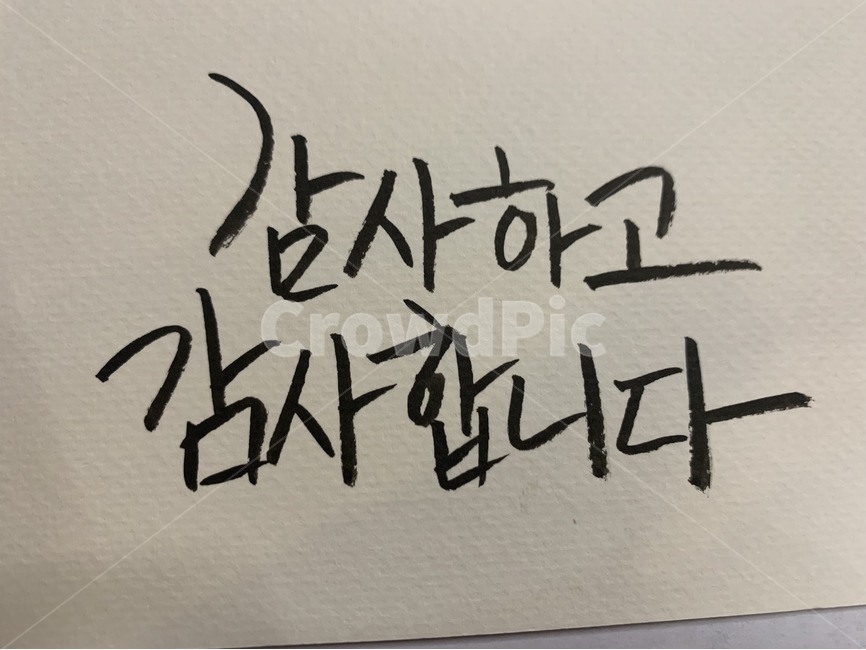 감사하고
감사합니다
CrowdPic